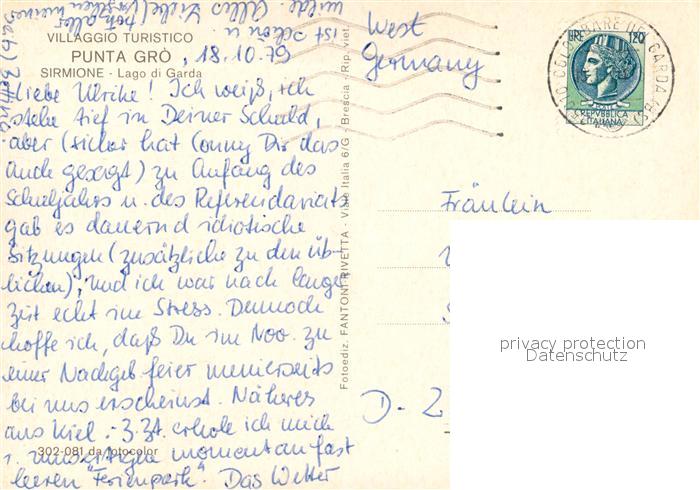 VILLAGGIO TURISTICO
PUNTA GRÒ , 18.10.79
SIRMIONE - Lago di Garda
Liebe Ulrike! Ich weiß, ich
stehe tief in Deiner Schuld,
aber (sicher hat Conny Dir das
auch gesagt) zu Anfang des
Schuljahrs u. des Referendariats
gab es dauernd idiotische
Sitzungen (zusätzliche zu den üb-
lichen), und ich war nach langer
Zeit echt im Stress. Dennoch
hoffe ich, daß Du im Nov. zu
einer Nachgeb.feier meinerseits
bei uns erscheinst. Näheres
aus Kiel. - Z.Zt. erhole ich mich
302-081 da fotocolor
momentan fast
leeren "Ferienpark". Das Wetter
ist schön u.
milde. Alles Liebe
Fotoediz. FANTONI-RIVETTA - Viale Italia 6/G - Brescia - Rip. viet.
West
Germany
LIRE 120
REPVBBLICA
ITALIANA
Fräulein
D - 2
privacy protection
Datenschutz